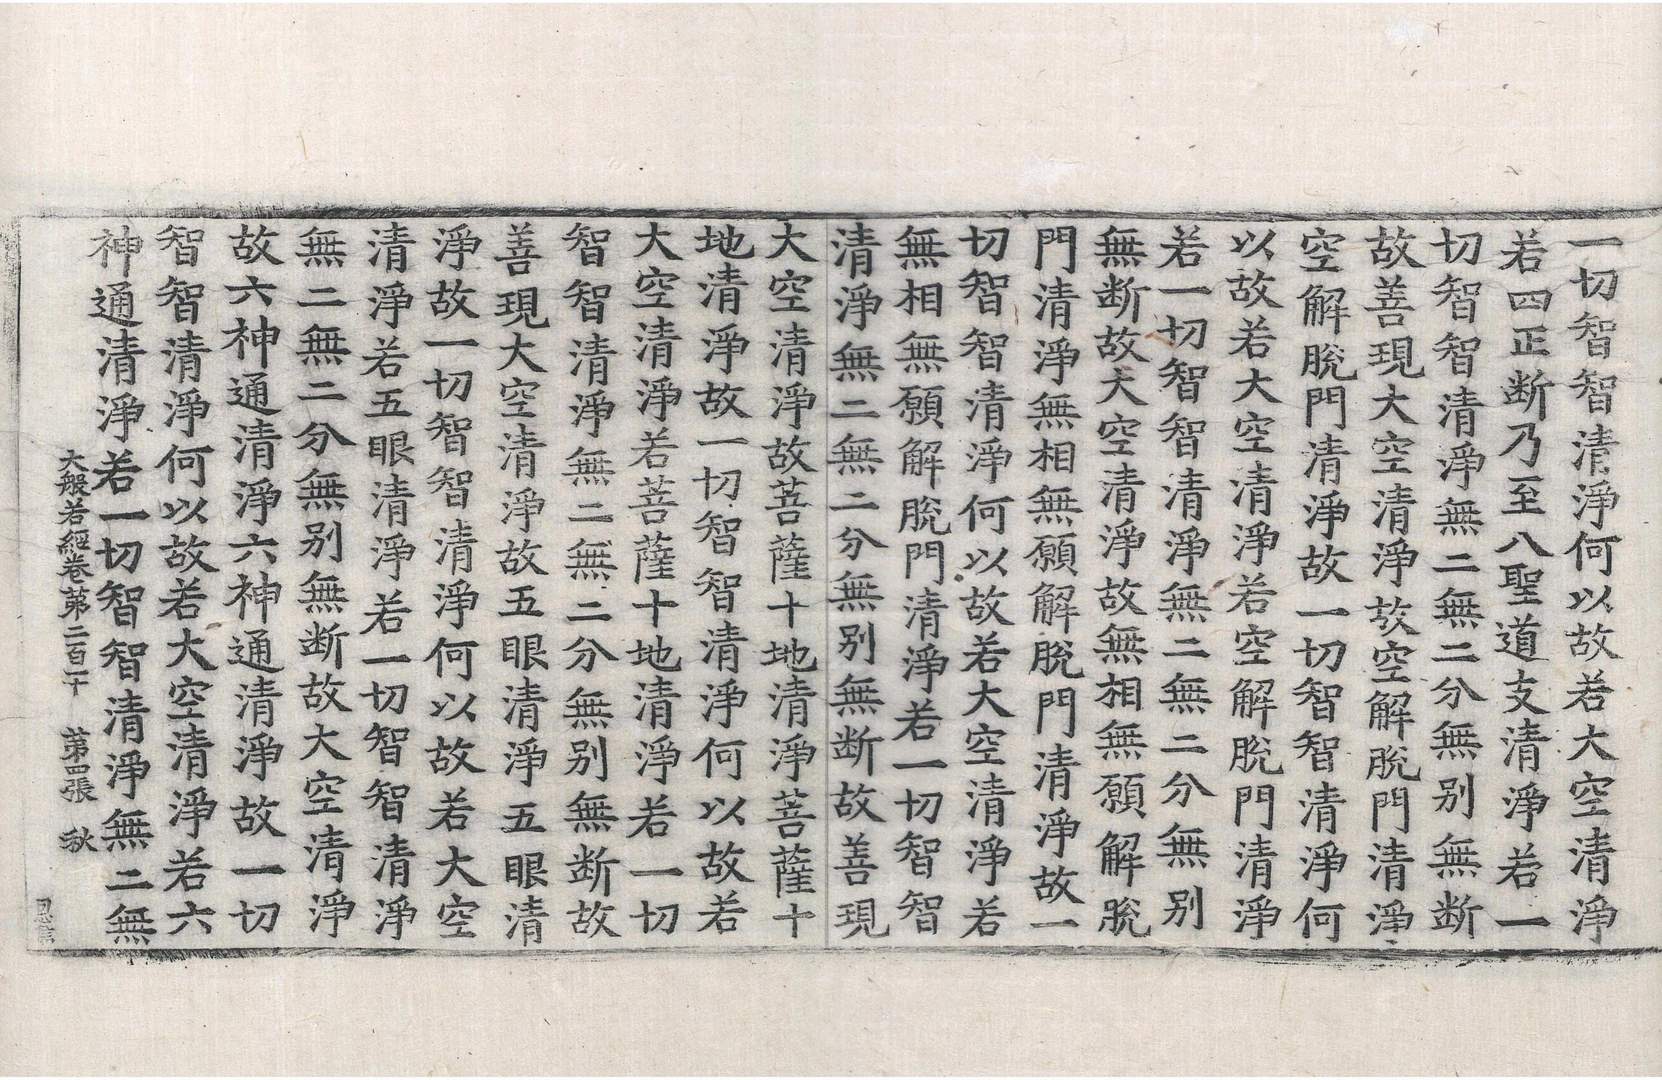 一切智智清淨何以故若大空清淨
若四正断乃至八聖道支清淨若一
切智智清淨無二無二分無别無断
故善現大空清淨故空解脫門清淨
空解脫門清淨故一切智智清淨何
以故若大空清淨若空解脫門清淨
若一切智智清淨無二無二分無别
無断故大空清淨故無相無願解脫
門清淨無相無願解脫門清淨故一
切智智清淨何以故若大空清淨若
無相無願解脫門清淨若一切智智
清淨無二無二分無别無断故善現
大空清淨故菩薩十地清淨菩薩十
地清淨故一切智智清淨何以故若
大空清淨若菩薩十地清淨若一切
智智清淨無二無二分無别無断故
善現大空清淨故五眼清淨五眼清
淨故一切智智清淨何以故若大空
清淨若五眼清淨若一切智智清淨
無二無二分無别無断故大空清淨
故六神通清淨六神通清淨故一切
智智清淨何以故若大空清淨若六
神通清淨若一切智智清淨無二無
大般若經卷第二百十 第四張 秋